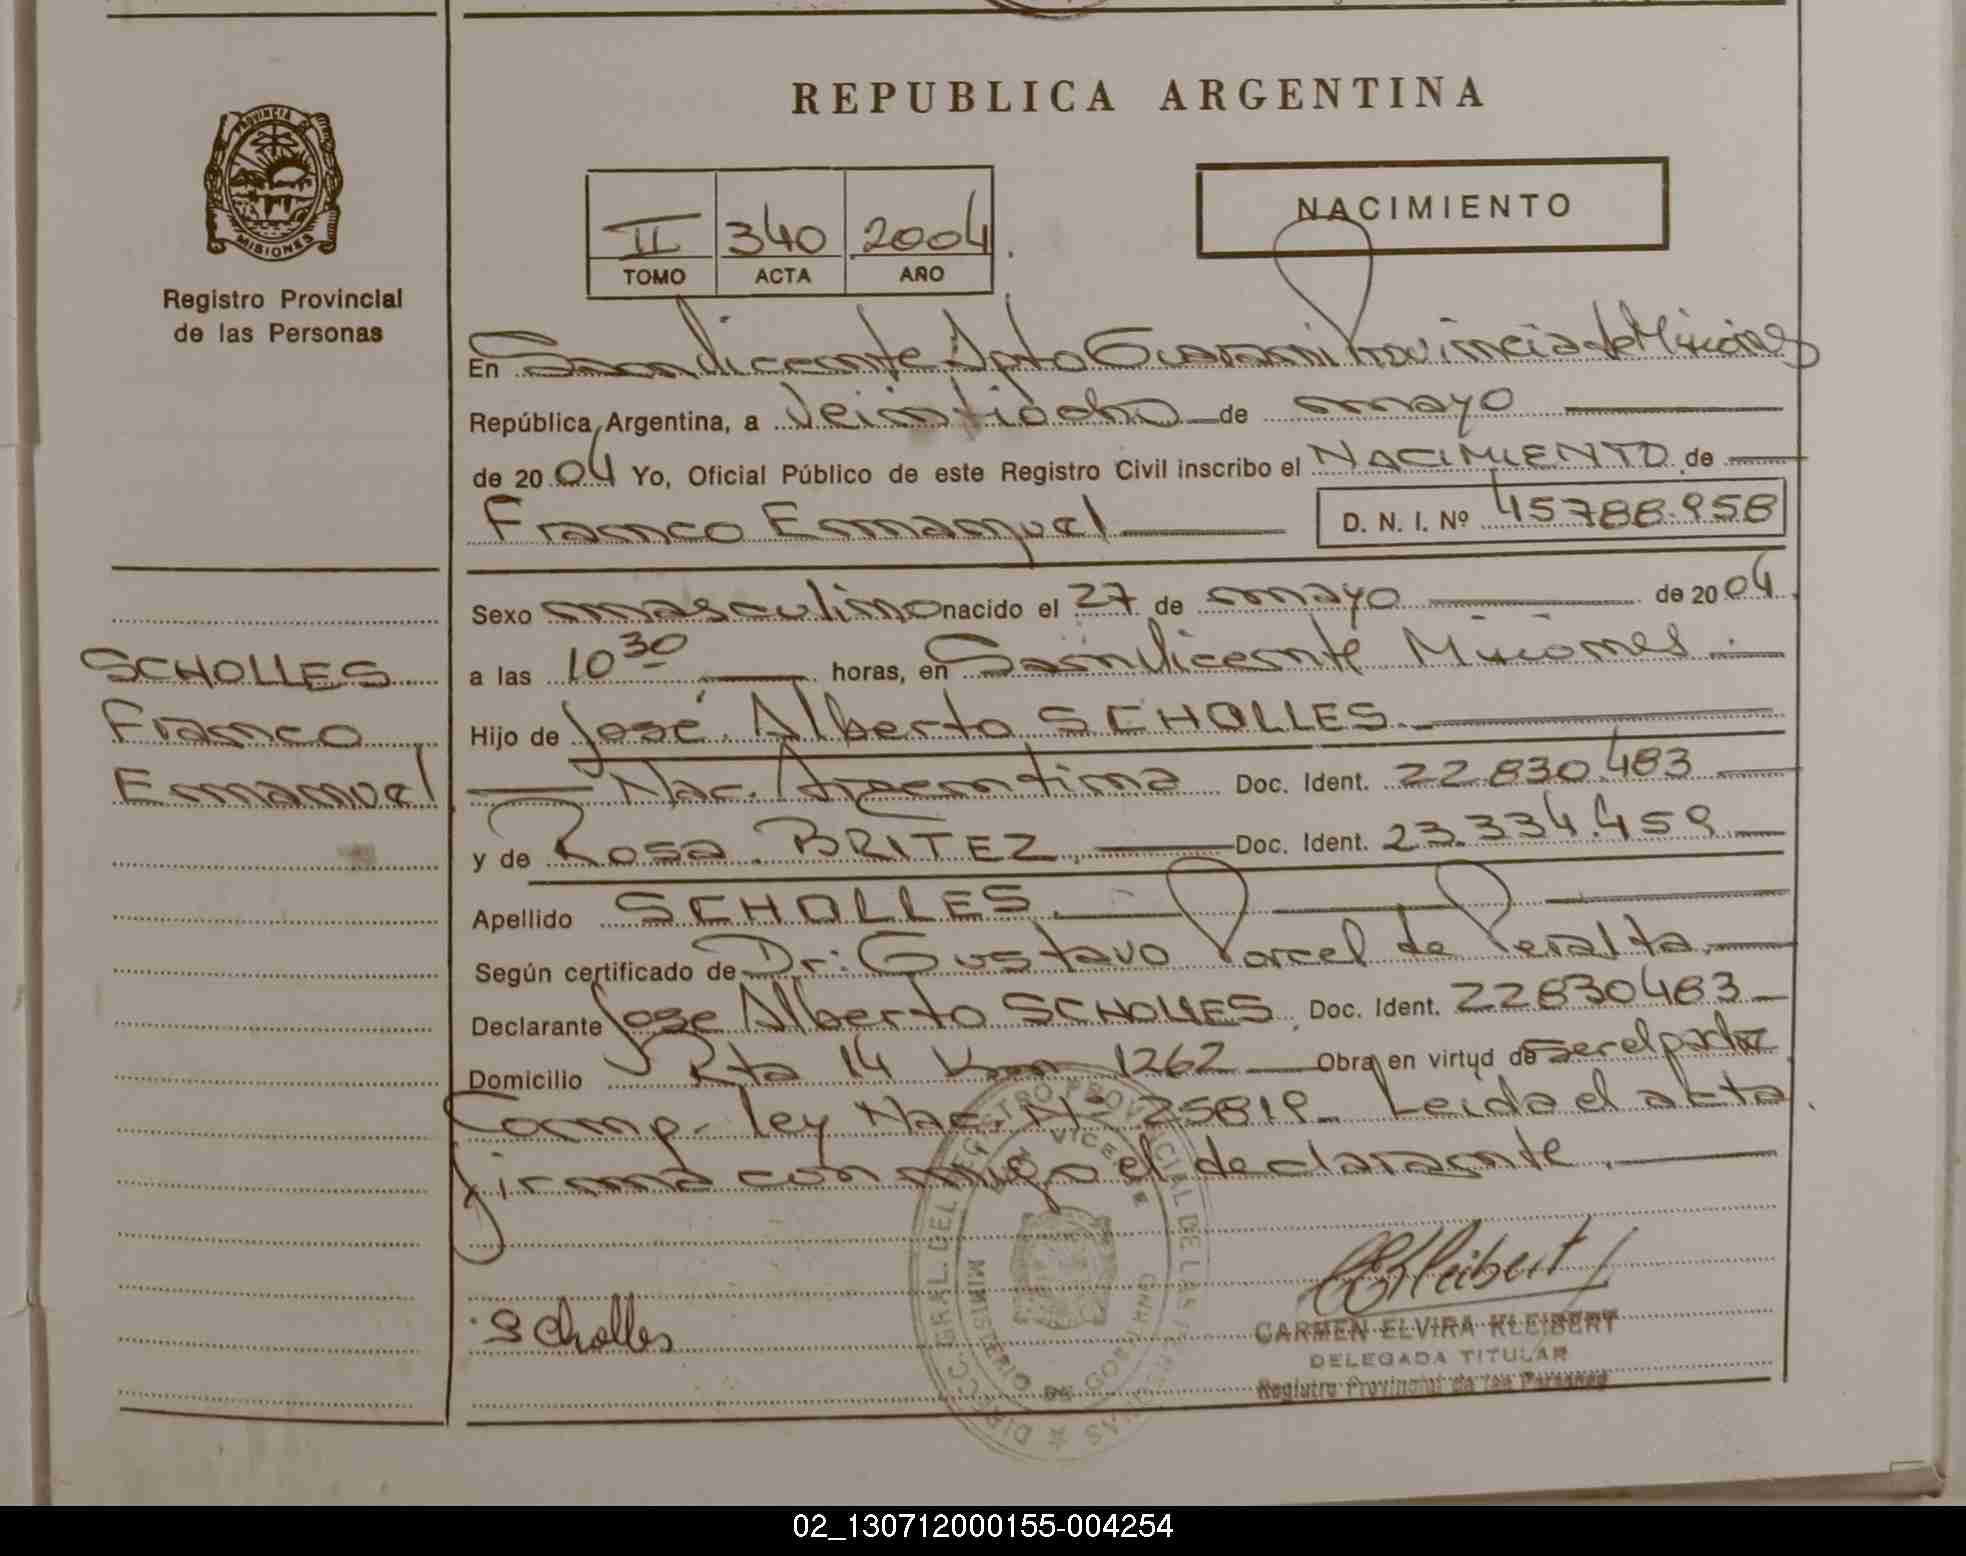 REPUBLICA ARGENTINA
PROVINCIA DE
MISIONES
Registro Provincial
de las Personas
NACIMIENTO
II 340 2004
TOMO ACTA AÑO
En San Vicente Dpto Guarani Provincia de Misiones
República Argentina, a Veintiocho de mayo
de 2004 Yo, Oficial Público de este Registro Civil inscribo el NACIMIENTO de
Franco Emanuel D. N. I. Nº 45788.958
Sexo masculino nacido el 27 de mayo de 2004
a las 10 30 horas, en San Vicente Misiones
SCHOLLES
Franco
Emanuel
Hijo de José Alberto SCHOLLES
Nac. Argentina Doc. Ident. 22.830.483
y de Rosa BRITEZ Doc. Ident. 23.334.459
Apellido SCHOLLES
Según certificado de Dr: Gustavo Porcel de Peralta
Declarante Jose Alberto SCHOLLES Doc. Ident. 22830483
Domicilio Rta 14 Km 1262 Obra en virtud de ser el padre
Comp. ley Nac. Nº 25819 Leida el acta
firma conmigo el declarante
Scholles
CKleibert
CARMEN ELVIRA KLEIBERT
DELEGADA TITULAR
Registro Provincial de las Personas
DIRECC. GRAL. DEL REGISTRO PROVINCIAL DE LAS PERSONAS
MINISTERIO DE GOBIERNO
SAN VICENTE
02_130712000155-004254